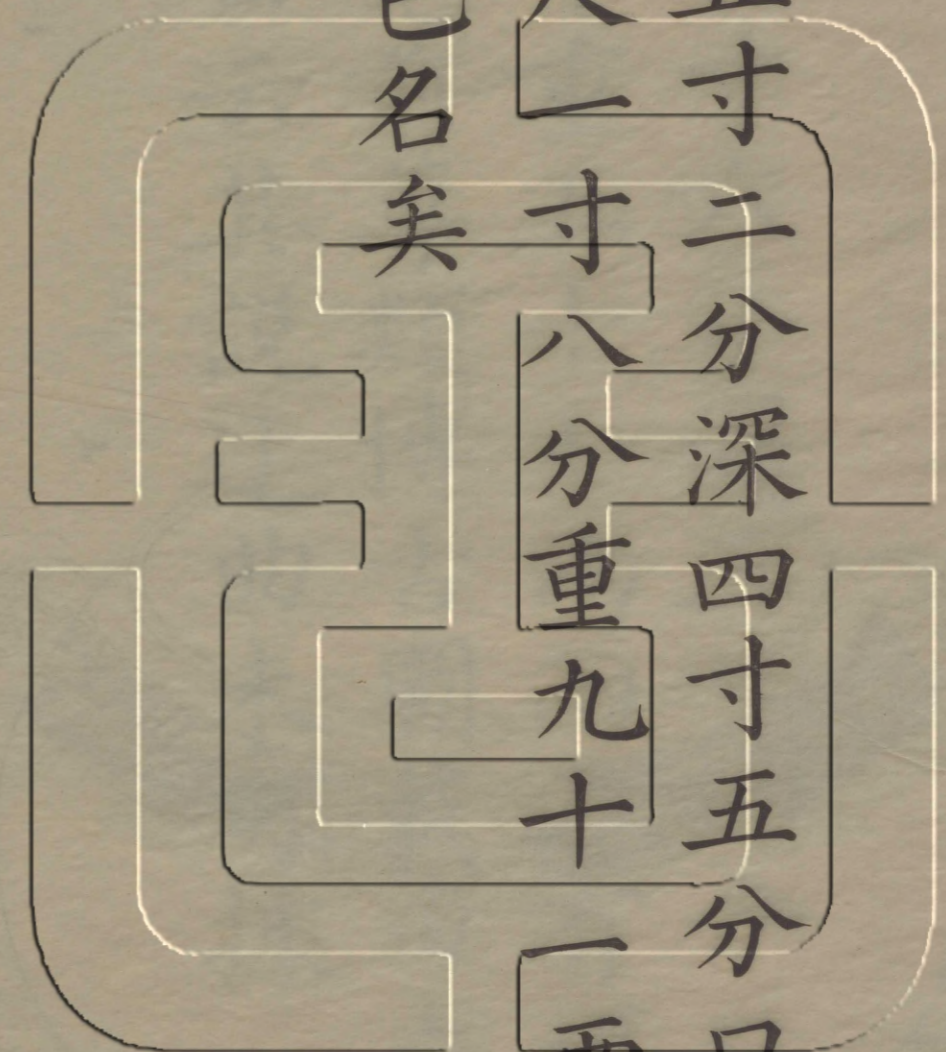 寸二分深四寸五分
一寸八分重九十一
名矣